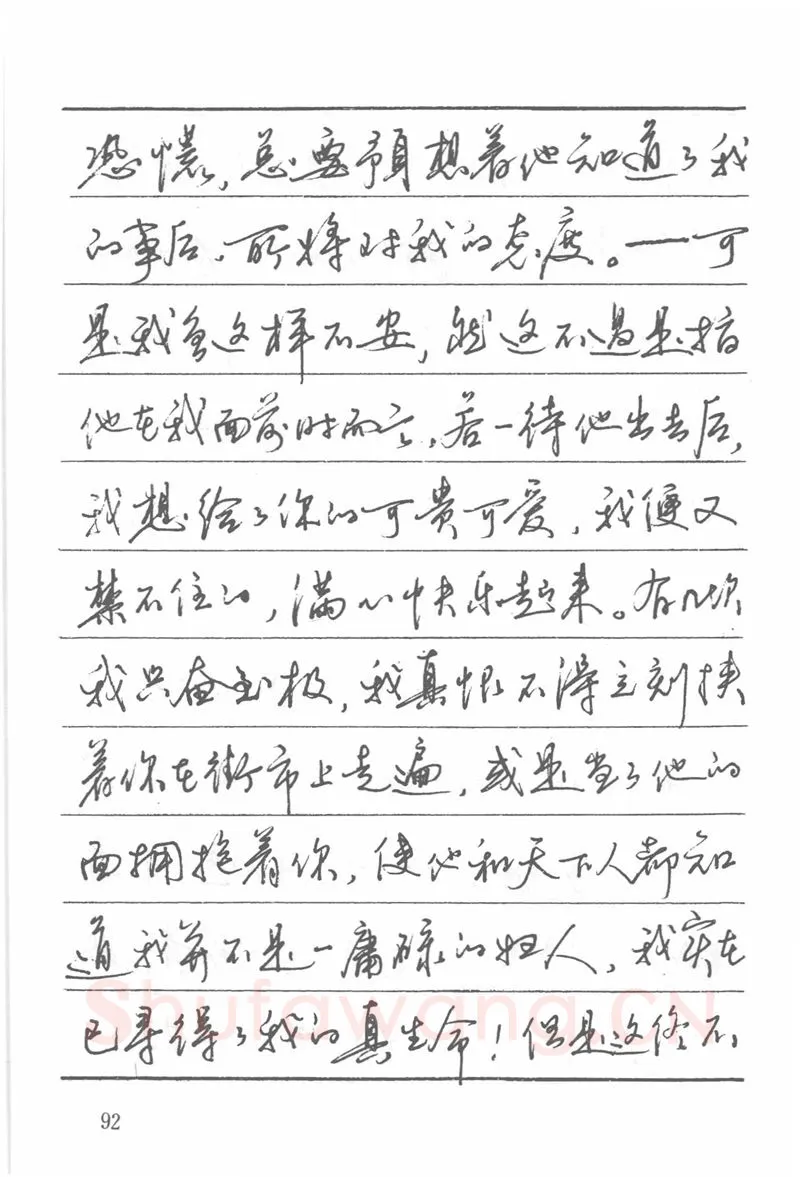 恐慌，总要预想着他知道了我
的事后，所将对我的态度。——可
是我虽这样不安，然这不过是指
他在我面前时而言，若一待他出去后，
我想给了你的可贵可爱，我便又
禁不住的，满心快乐起来。有几次
我兴奋至极，我真恨不得立刻挟
着你在街市上走遍，或是当了他的
面拥抱着你，使他和天下人都知
道我并不是一庸碌的妇人，我实在
已寻得了我的真生命！但是这终不
92
Shufawang.CN